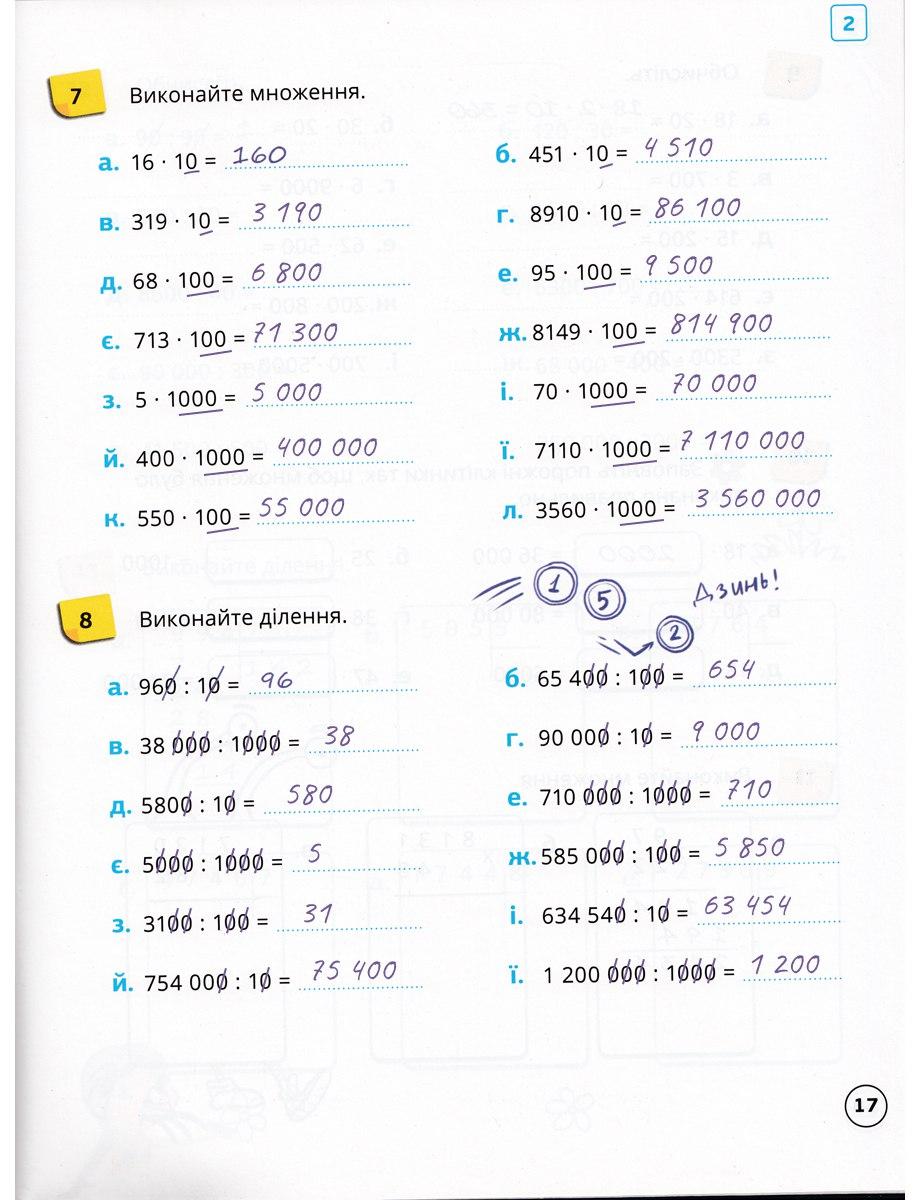 2
7 Виконайте множення.
а. 16 · 10 = 160 б. 451 · 10 = 4 510
в. 319 · 10 = 3 190 г. 8910 · 10 = 86 100
д. 68 · 100 = 6 800 е. 95 · 100 = 9 500
є. 713 · 100 = 71 300 ж. 8149 · 100 = 814 900
з. 5 · 1000 = 5 000 і. 70 · 1000 = 70 000
й. 400 · 1000 = 400 000 ї. 7110 · 1000 = 7 110 000
к. 550 · 100 = 55 000 л. 3560 · 1000 = 3 560 000
1 5 2 Дзинь!
8 Виконайте ділення.
а. 960 : 10 = 96 б. 65 400 : 100 = 654
в. 38 000 : 1000 = 38 г. 90 000 : 10 = 9 000
д. 5800 : 10 = 580 е. 710 000 : 1000 = 710
є. 5000 : 1000 = 5 ж. 585 000 : 100 = 5 850
з. 3100 : 100 = 31 і. 634 540 : 10 = 63 454
й. 754 000 : 10 = 75 400 ї. 1 200 000 : 1000 = 1 200
17